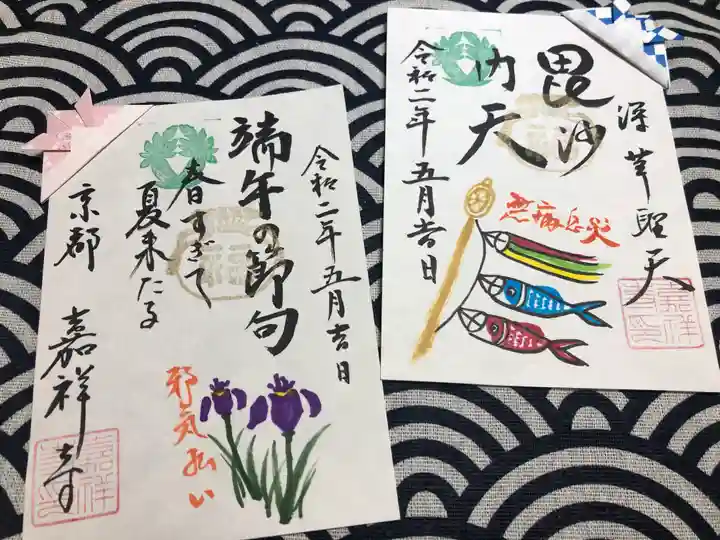 令和二年五月吉日
端午の節句
春すぎて
夏来たる
邪気払い
京都 嘉祥寺
嘉祥
深草聖天
毘沙
門天
令和二年五月吉日
悪病息災
嘉祥
寺印